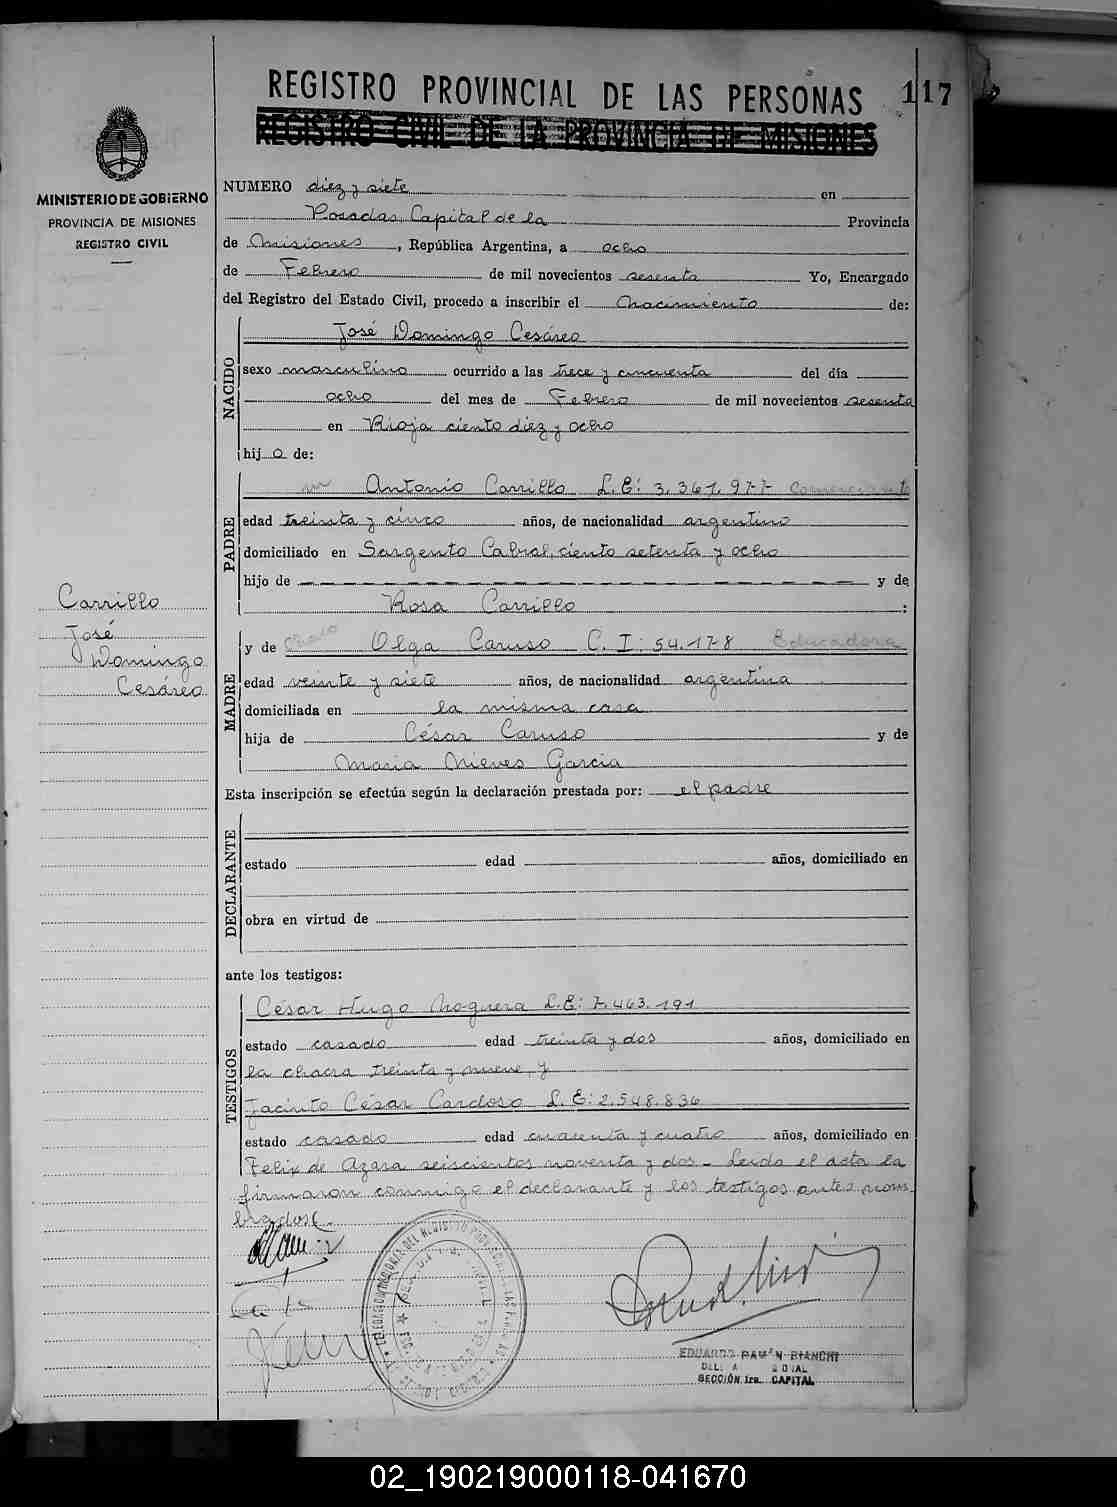 REGISTRO PROVINCIAL DE LAS PERSONAS
117
REGISTRO CIVIL DE LA PROVINCIA DE MISIONES
MINISTERIO DE GOBIERNO
PROVINCIA DE MISIONES
REGISTRO CIVIL
NUMERO diez y siete en
Posadas, Capital de la Provincia
de Misiones, República Argentina, a ocho
de Febrero de mil novecientos sesenta Yo, Encargado
del Registro del Estado Civil, procedo a inscribir el Nacimiento de:
NACIDO
José Domingo Cesáreo
sexo masculino ocurrido a las trece y cincuenta del día
ocho del mes de Febrero de mil novecientos sesenta
en Rioja ciento diez y ocho
hijo de:
PADRE
Antonio Carrillo L.E: 3.361.977 Comerciante
edad treinta y cinco años, de nacionalidad argentino
domiciliado en Sargento Cabral, ciento setenta y ocho
hijo de y de
Rosa Carrillo :
Carrillo
José
Domingo
Cesáreo
MADRE
y de Olga Caruso C. I: 54.178 Educadora
edad veinte y siete años, de nacionalidad argentina
domiciliada en la misma casa
hija de César Caruso y de
Maria Nieves Garcia
Esta inscripción se efectúa según la declaración prestada por: el padre
DECLARANTE
estado edad años, domiciliado en
obra en virtud de
ante los testigos:
TESTIGOS
César Hugo Noguera L.E: 7.463.191
estado casado edad treinta y dos años, domiciliado en
la chacra treinta y nueve, y
Jacinto César Cardoso L.E: 2.548.836
estado casado edad cuarenta y cuatro años, domiciliado en
Felix de Azara seiscientos noventa y dos - Leida el acta la
firmaron conmigo el declarante y los testigos antes nom-
brados.
EDUARDO RAMÓN BIANCHI
SECCIÓN 1ra. CAPITAL
02_190219000118-041670